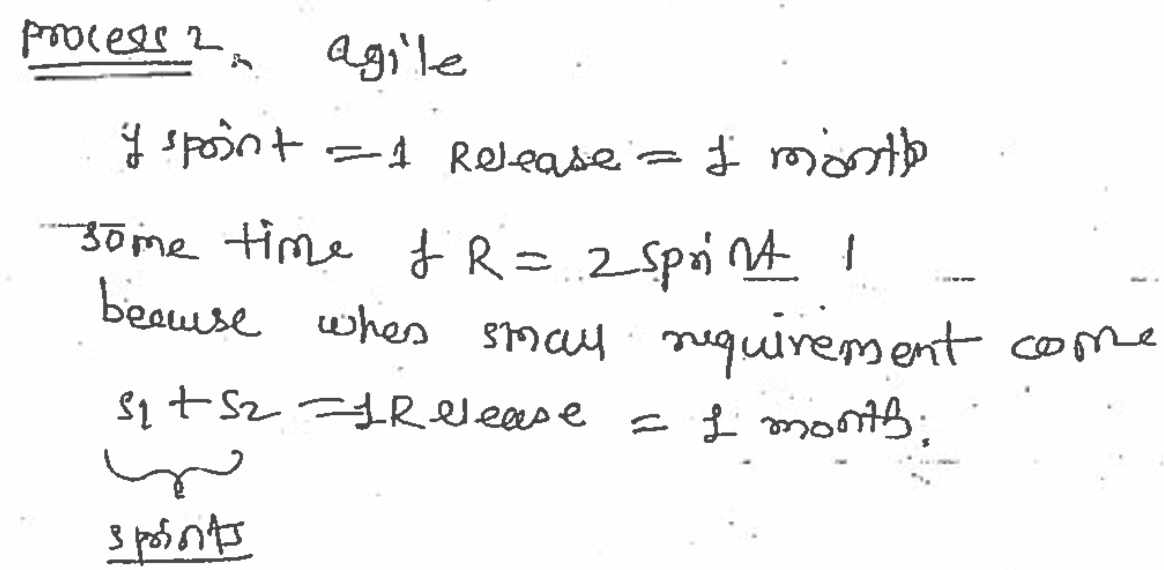 process 2. agile
1 sprint = 1 Release = 1 month
some time 1 R = 2 sprint 1
because when small requirement come
S1 + S2 = 1 Release = 1 month.
sprints